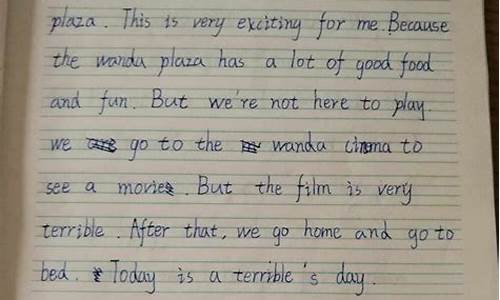 plaza. This is very exciting for me. Because
the wanda plaza has a lot of good food
and fun. But we're not here to play
we go to the wanda cinema to
see a movie. But the film is very
terrible. After that, we go home and go to
bed. Today is a terrible's day.